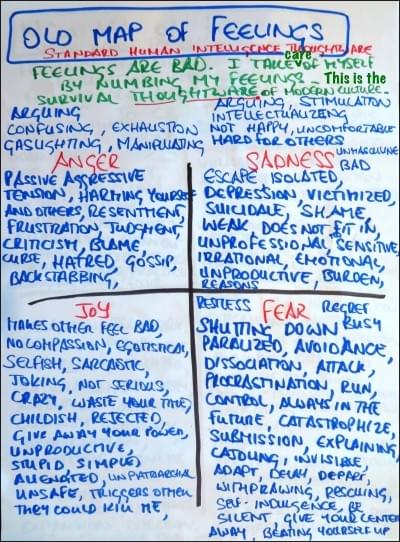 OLD MAP OF FEELINGS
STANDARD HUMAN INTELLIGENCE THOUGHTWARE
FEELINGS ARE BAD. I TAKE care OF MYSELF
BY NUMBING MY FEELINGS. This is the
SURVIVAL THOUGHTWARE OF MODERN CULTURE.
ARGUING
CONFUSING, EXHAUSTION
GASLIGHTING, MANIPULATING
ANGER
PASSIVE AGGRESSIVE
TENSION, HARMING YOURSELF
AND OTHERS, RESENTMENT,
FRUSTRATION, JUDGMENT,
CRITICISM, BLAME
CURSE, HATRED, GOSSIP,
BACKSTABBING,
ARGUING, STIMULATION
INTELLECTUALIZING
NOT HAPPY, UNCOMFORTABLE
HARD FOR OTHERS
UNMASCULINE
SADNESS BAD
ESCAPE ISOLATED,
DEPRESSION, VICTIMIZED,
SUICIDALE, SHAME
WEAK, DOES NOT FIT IN,
UNPROFESSIONAL, SENSITIVE,
IRRATIONAL, EMOTIONAL,
UNPRODUCTIVE, BURDEN,
REASONS
JOY
MAKES OTHER FEEL BAD,
NO COMPASSION, EGOTISTICAL,
SELFISH, SARCASTIC,
JOKING, NOT SERIOUS,
CRAZY, WASTE YOUR TIME,
CHILDISH, REJECTED,
GIVE AWAY YOUR POWER,
UNPRODUCTIVE,
STUPID, SIMPLE,
ALIENATED, UNPATRIARCHAL
UNSAFE, TRIGGERS OTHER
THEY COULD KILL ME,
RESTLESS FEAR REGRET
SHUTTING DOWN BUSY
PARALIZED, AVOIDANCE,
DISSOCIATION, ATTACK,
PROCRASTINATION, RUN,
CONTROL, ALWAYS IN THE
FUTURE, CATASTROPHIZE,
SUBMISSION, EXPLAINING,
INVISIBLE
ADAPT, DELAY, DEPART,
WITHDRAWING, RESCUING,
SELF-INDULGENCE, BE
SILENT, GIVE YOUR CENTER
AWAY, BEATING YOURSELF UP